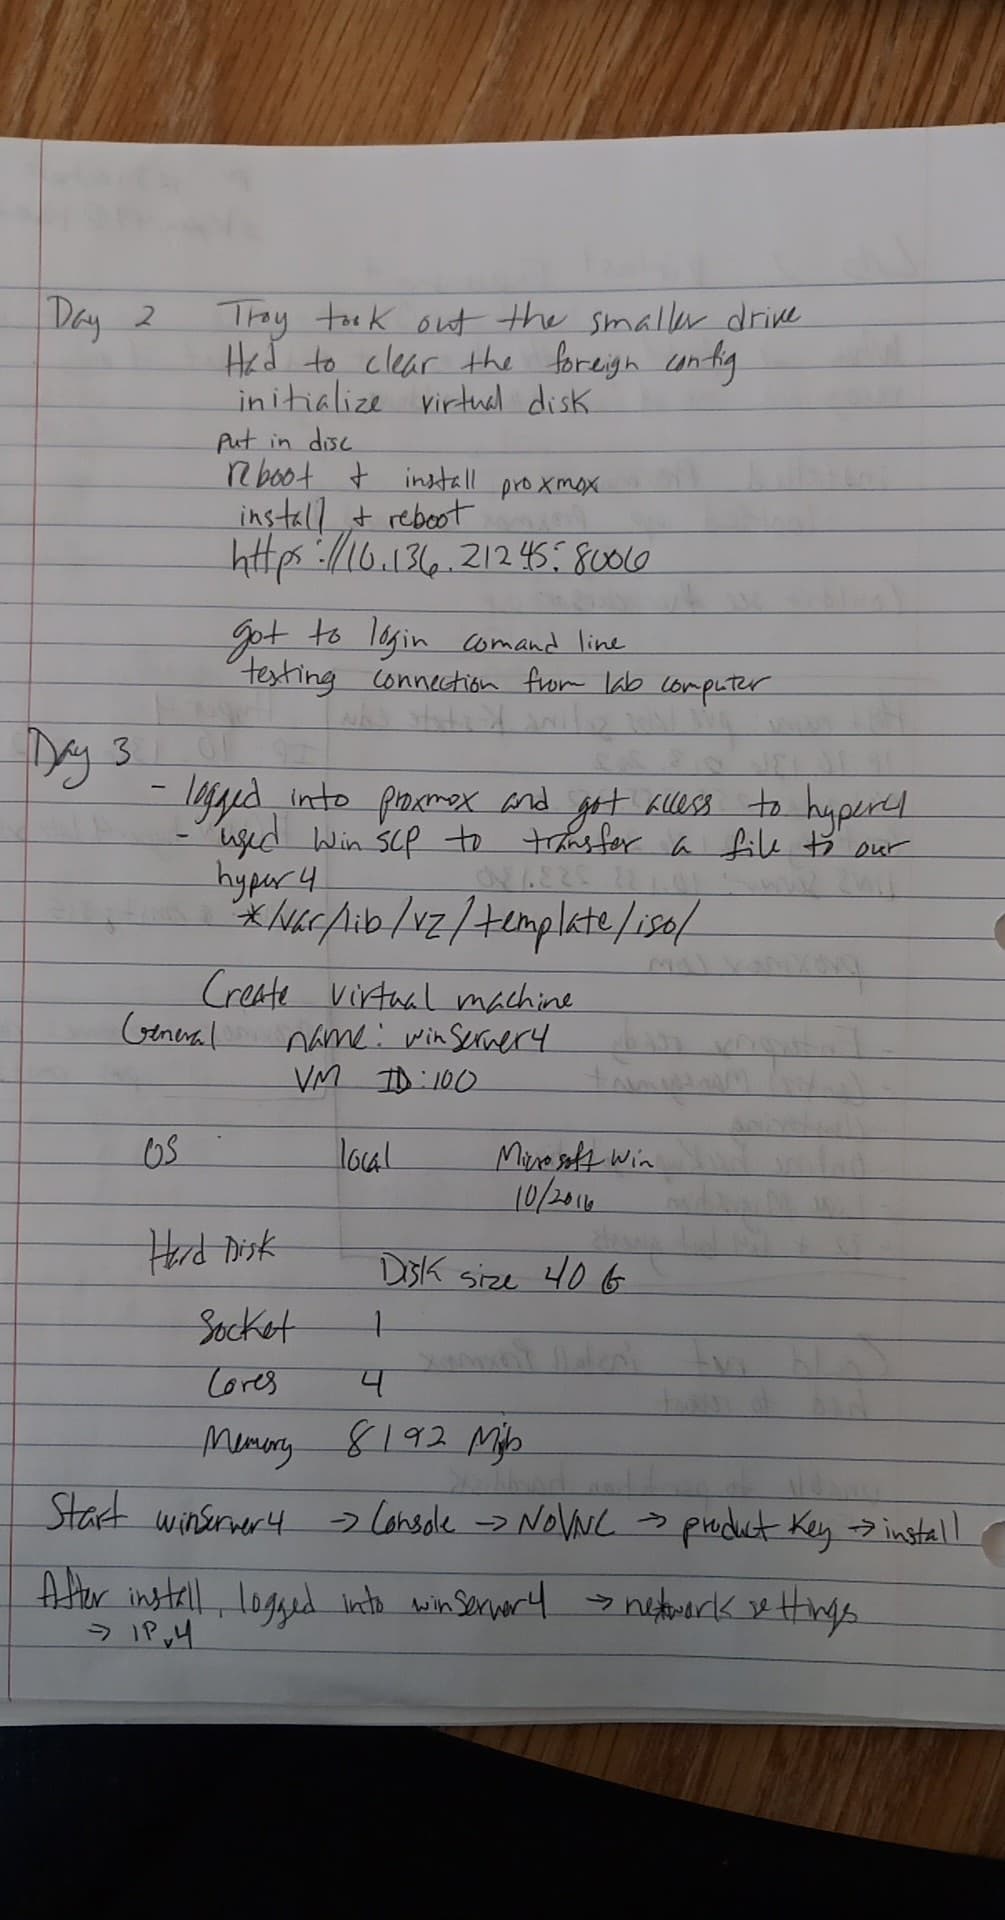 Day 2 Troy took out the smaller drive
Had to clear the foreign config
initialize virtual disk
put in disc
reboot + install proxmox
install + reboot
https://10.136.212.45:8006
got to login comand line
testing connection from lab computer
Day 3
- logged into proxmox and got access to hyper4
- used Win SCP to transfer a file to our
hyper4
*/var/lib/vz/template/iso/
Create virtual machine
General name: winServer4
VM ID:100
OS local Microsoft Win
10/2016
Hard Disk
Disk size 40 G
Socket 1
Cores 4
Memory 8192 Mb
Start winServer4 → Console → NoVNC → product key → install
After install, logged into winServer4 → network settings
→ IPv4